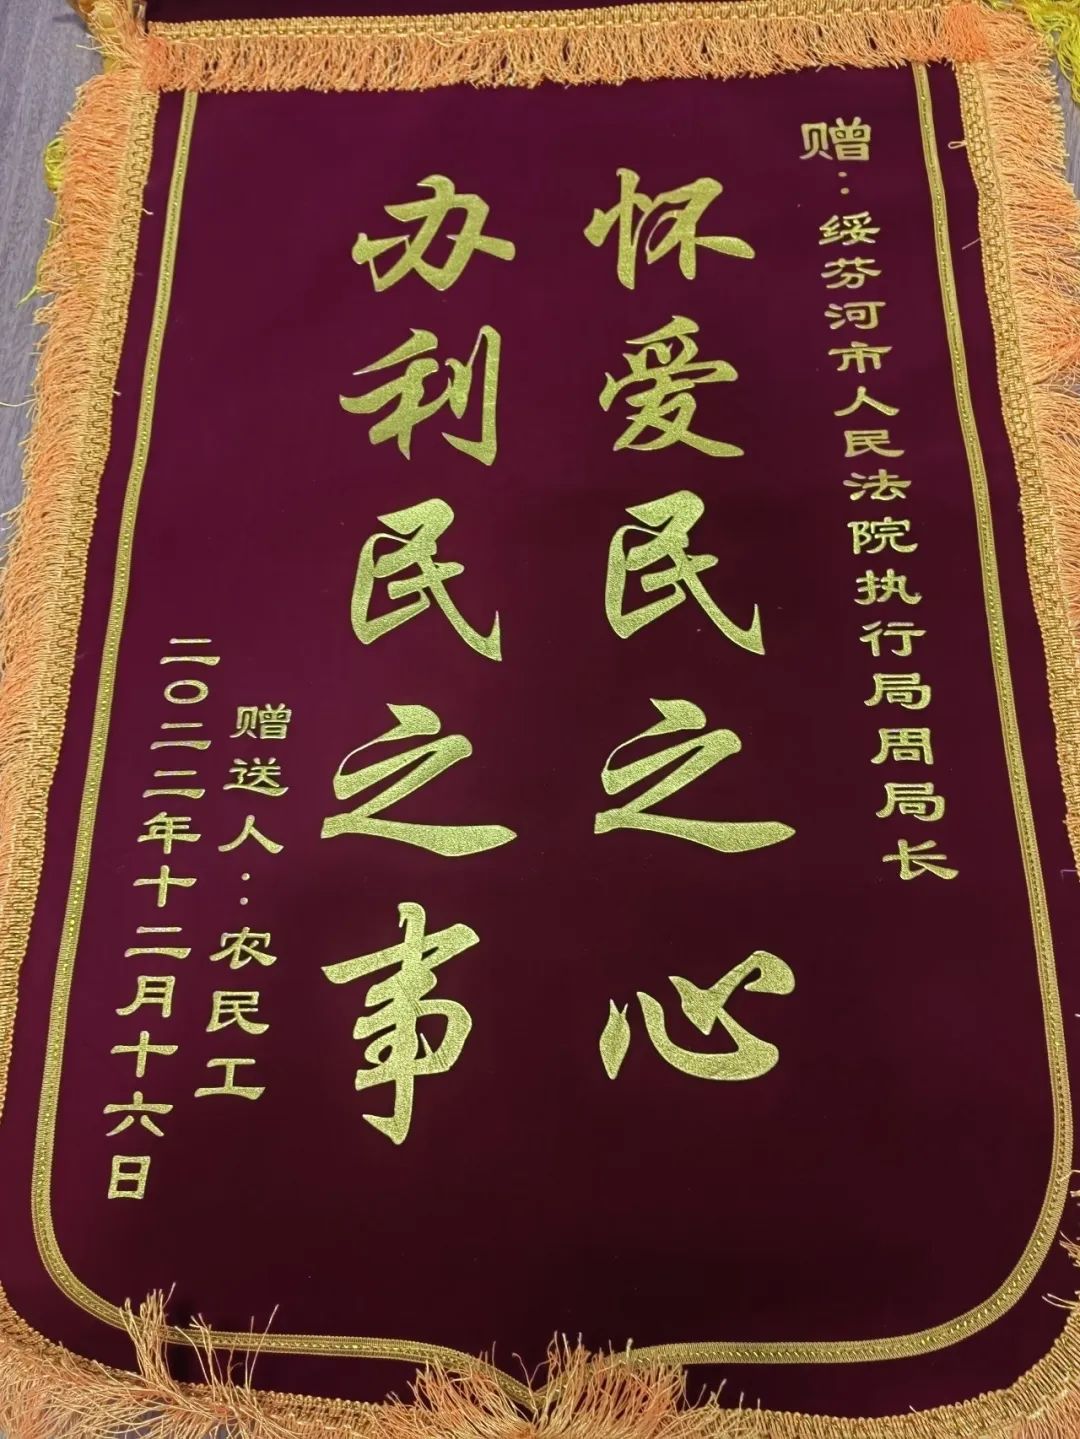 赠：绥芬河市人民法院执行局周局长
怀爱民之心
办利民之事
赠送人：农民工
二〇二二年十二月十六日